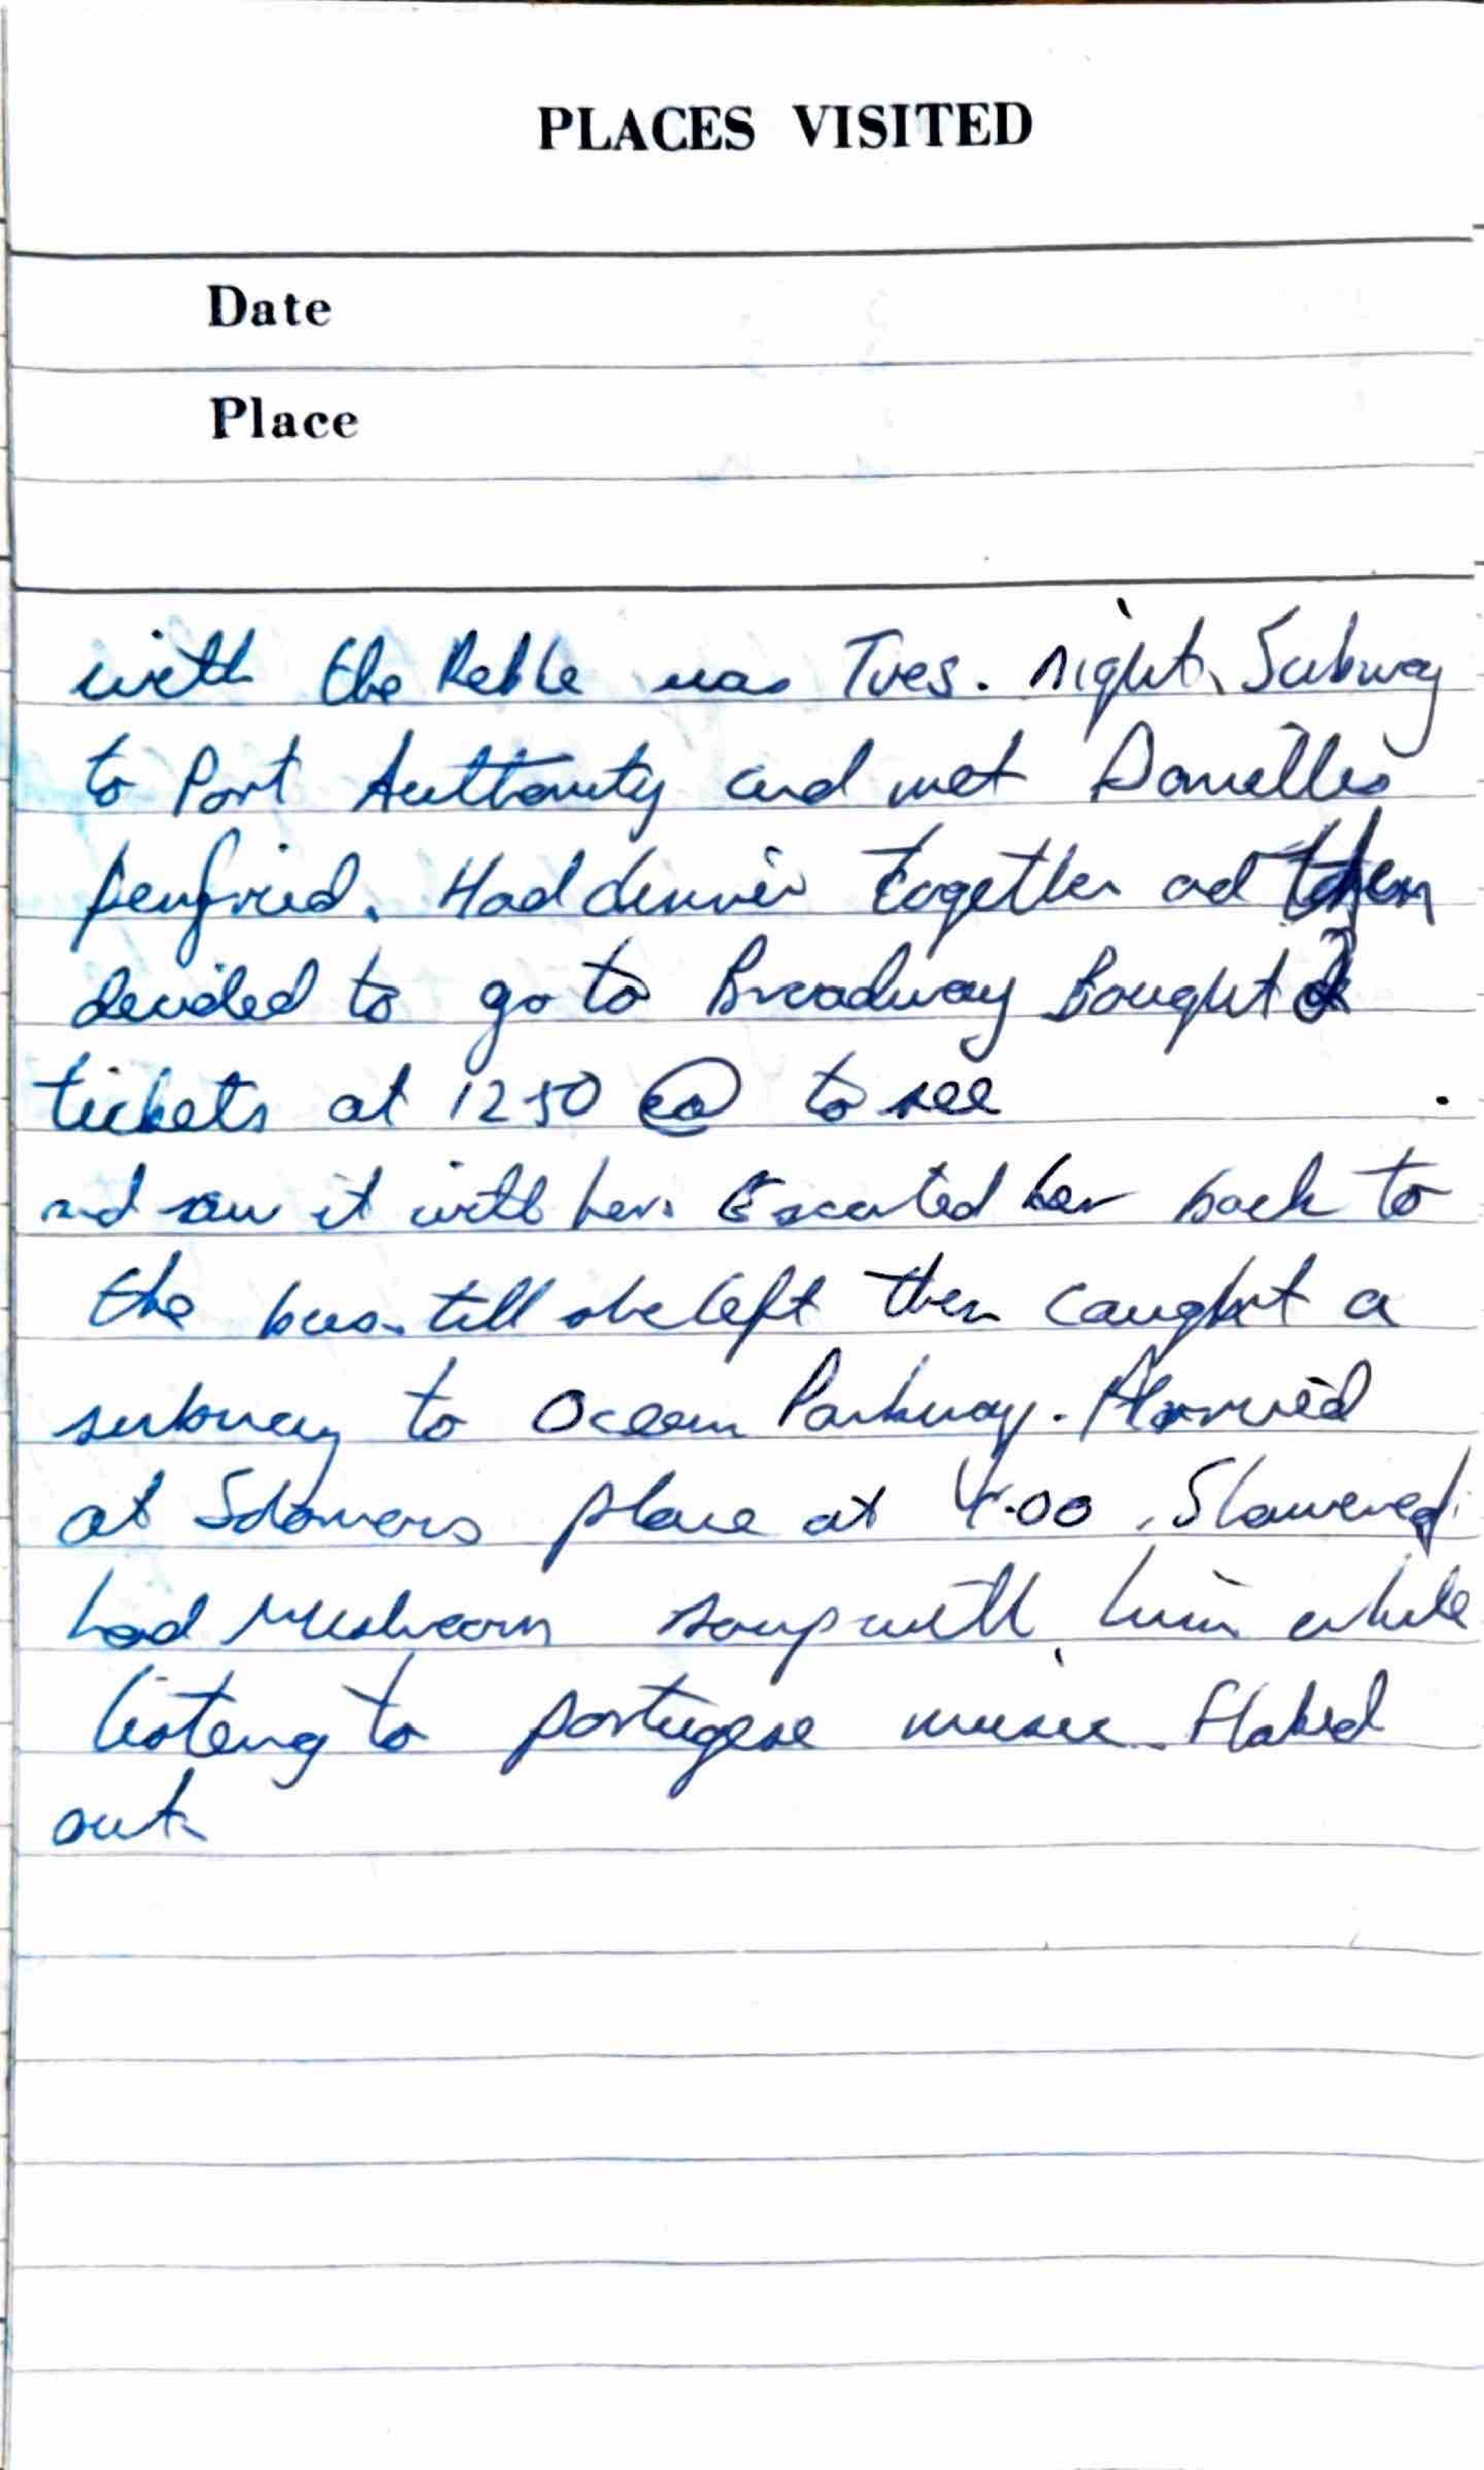 PLACES VISITED
Date
Place
with the was Tues. night. Subway
to Port Authority and met Danielles
penfried. Had dinner together and then
decided to go to Broadway Bought 2
tickets at 1250 ea to see .
and saw it with her. Escorted her back to
the bus till she left then caught a
subway to Ocean Parkway. Arrived
at place at 4.00. Showered
had Mushroom soup with him while
listeng to portugese music. Flaked
out.